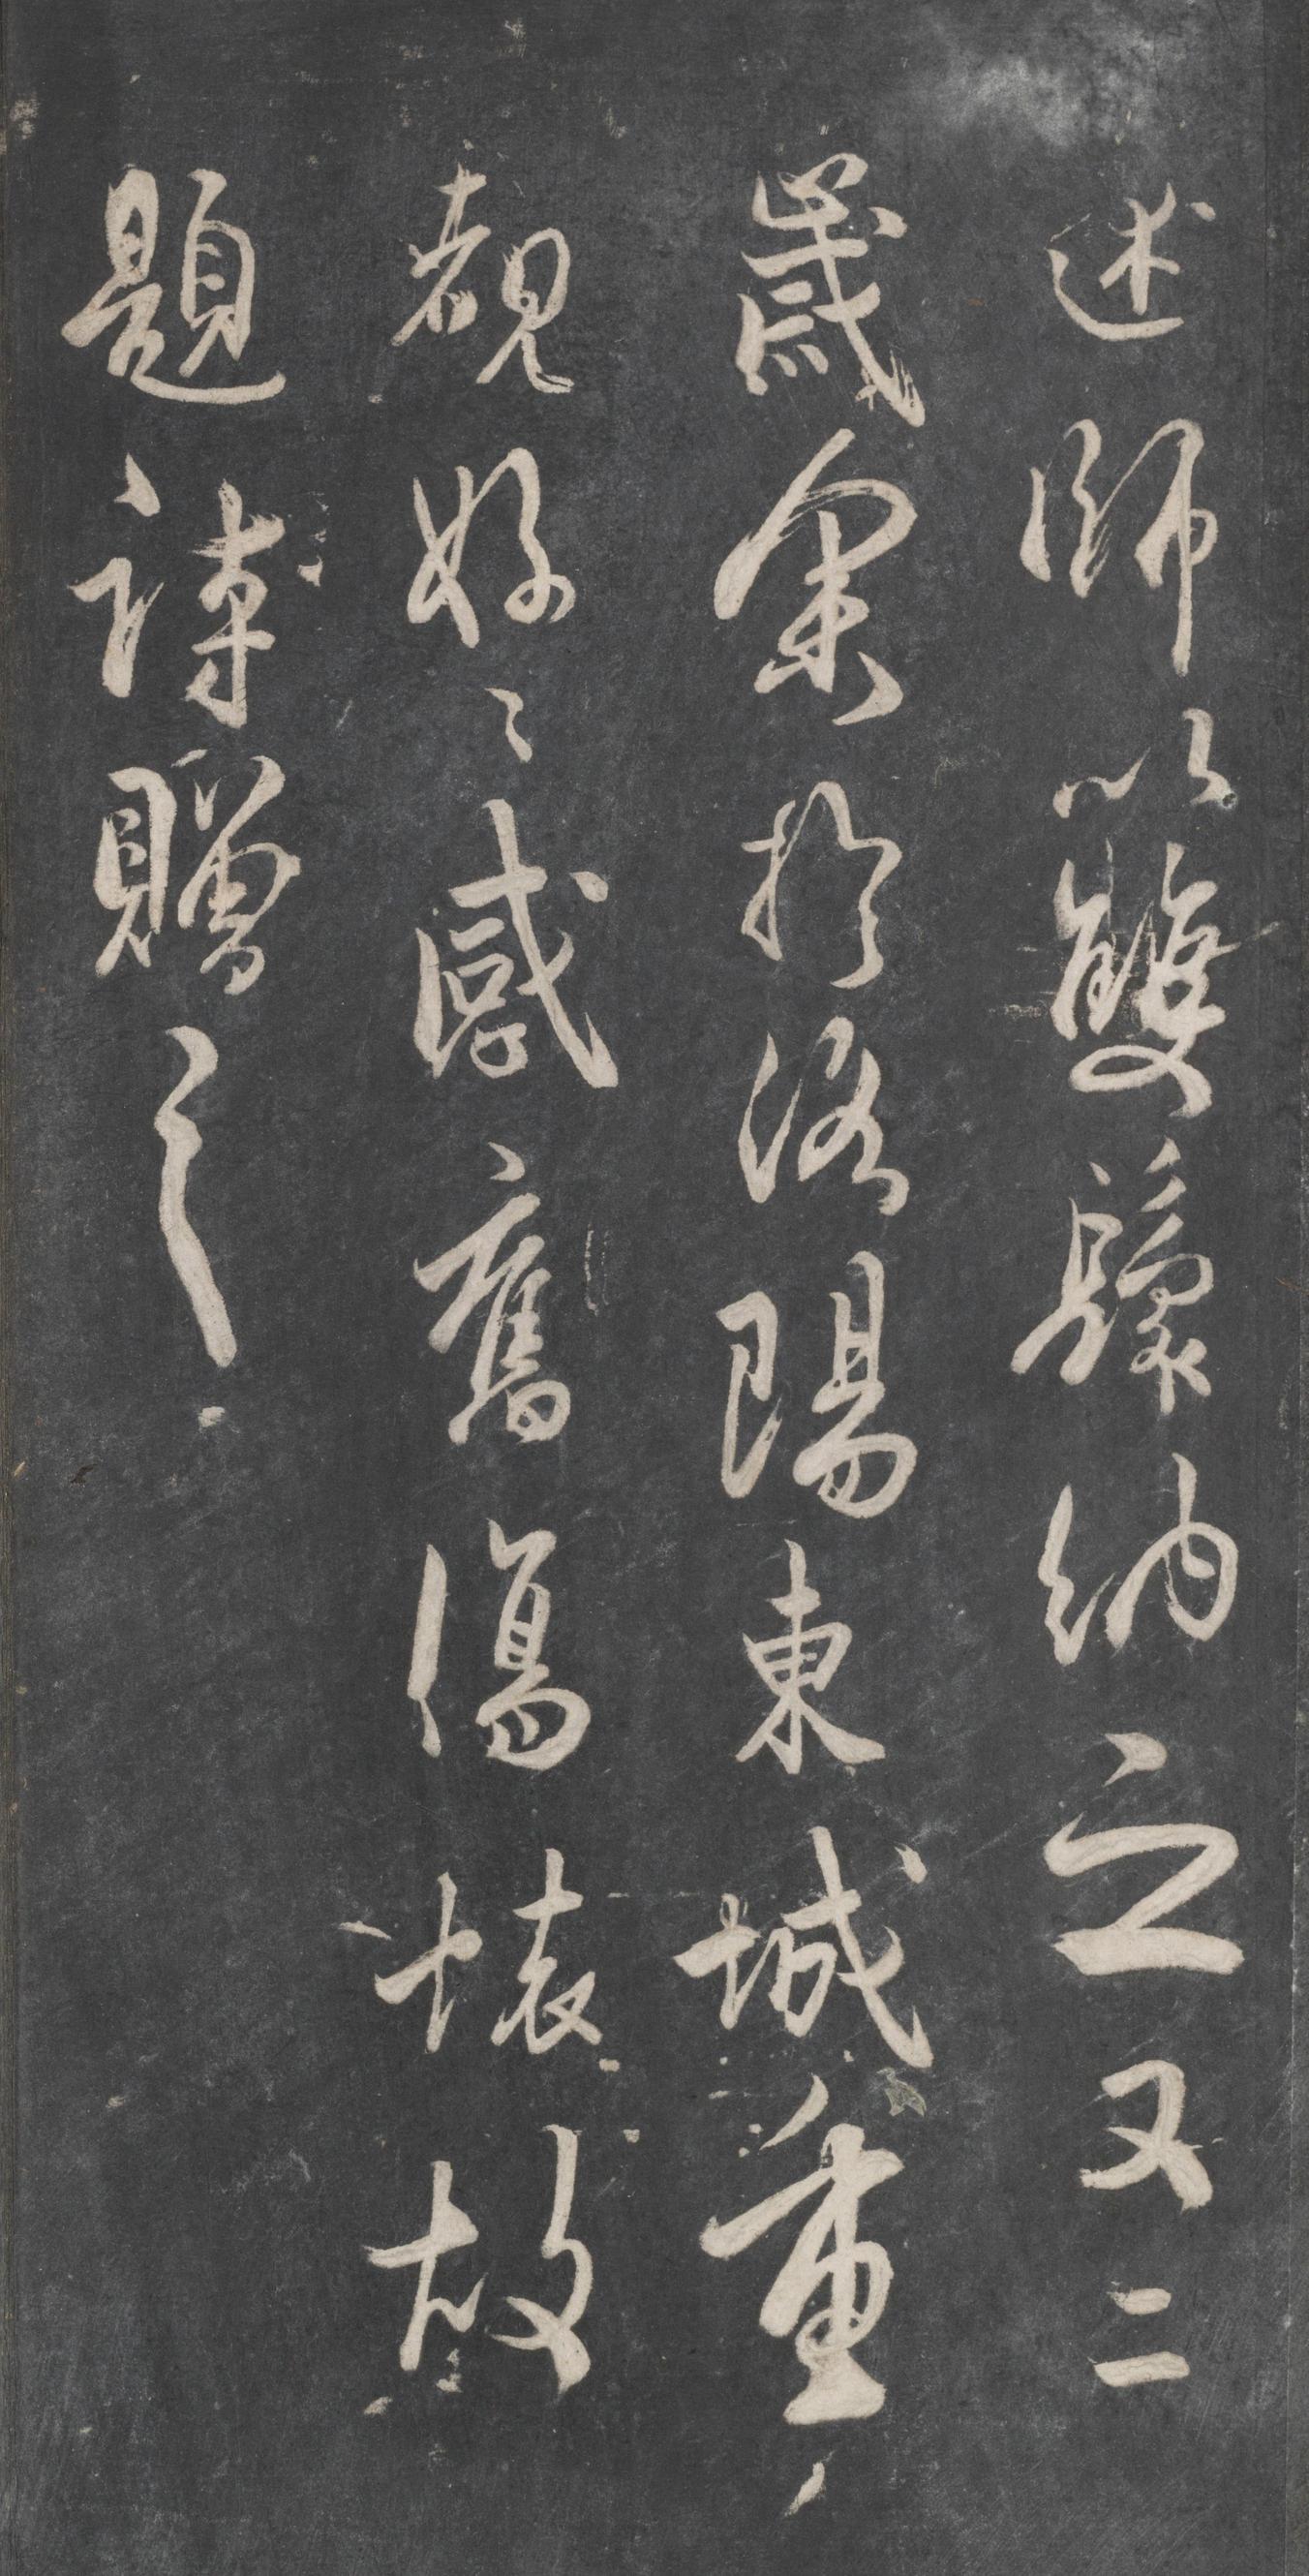 述師以雙鬟納之又二
歲余於洛陽東城重
覩好〻感舊傷懷故
題詩贈之